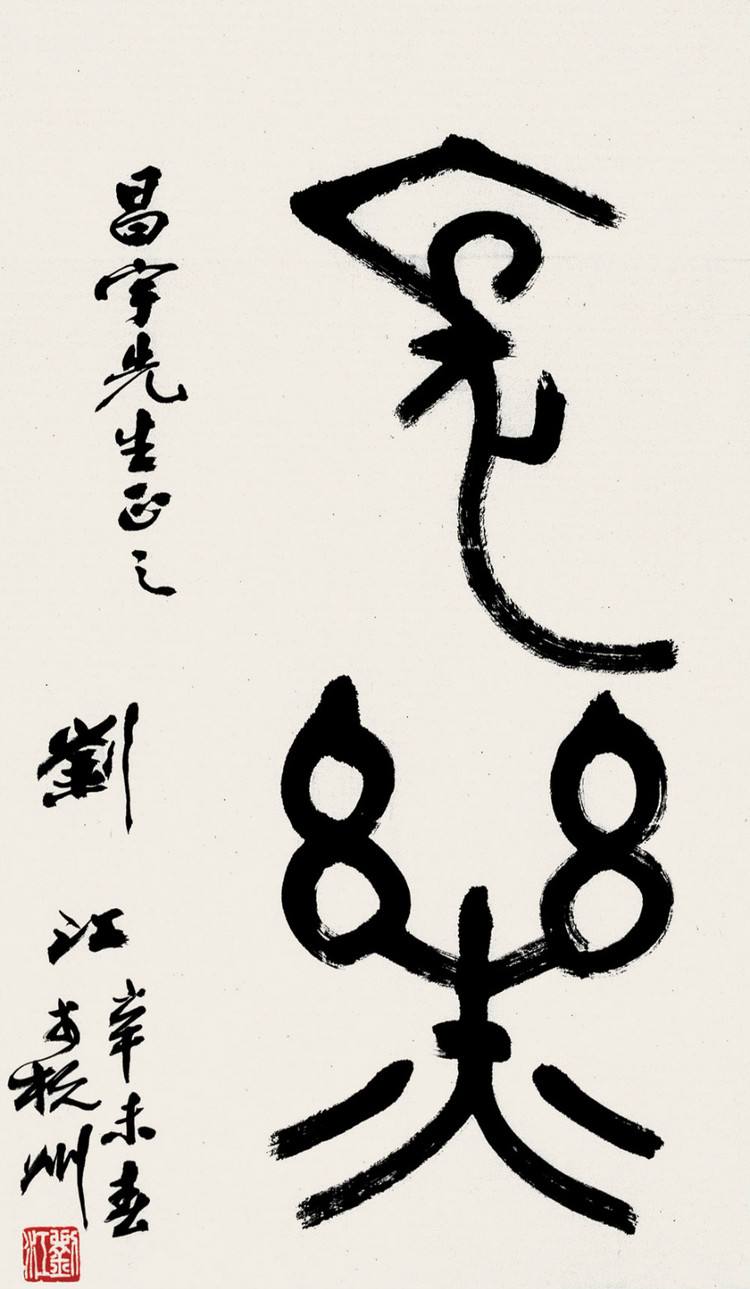 長樂
昌宇先生正之
劉江
辛未春
於杭州
劉江